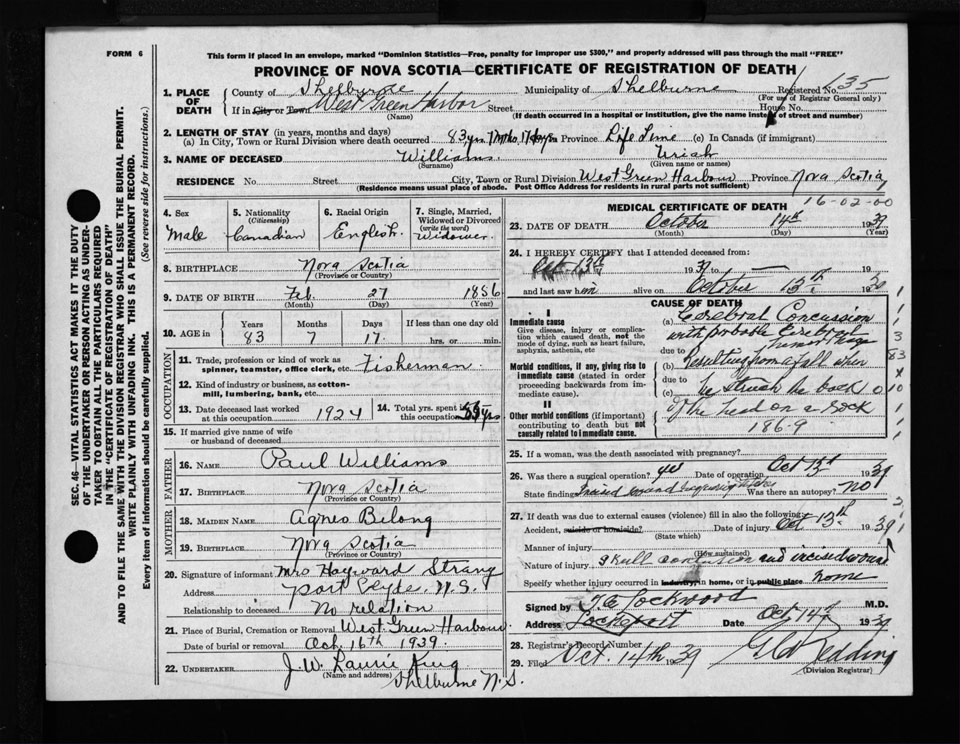 FORM 6
This form if placed in an envelope, marked "Dominion Statistics—Free, penalty for improper use $300," and properly addressed will pass through the mail "FREE"
PROVINCE OF NOVA SCOTIA—CERTIFICATE OF REGISTRATION OF DEATH
1. PLACE OF DEATH County of Shelburne Municipality of Shelburne Registered No. 35
(For use of Registrar General only)
If in City or Town West Green Harbor Street House No.
(Name) (If death occurred in a hospital or institution, give the name instead of street and number)
2. LENGTH OF STAY (in years, months and days)
(a) In City, Town or Rural Division where death occurred 83 yrs. 7 mths. 17 days in Province Life Time (c) In Canada (if immigrant)
3. NAME OF DECEASED Williams Uriah
(Surname) (Given name or names)
RESIDENCE No. Street City, Town or Rural Division West Green Harbour Province Nova Scotia
(Residence means usual place of abode. Post Office Address for residents in rural parts not sufficient)
16-02-00
4. Sex 5. Nationality (Citizenship) 6. Racial Origin 7. Single, Married, Widowed or Divorced (write the word)
Male Canadian English Widower
8. BIRTHPLACE Nova Scotia
(Province or Country)
9. DATE OF BIRTH Feb. 27 1856
(Month) (Day) (Year)
10. AGE in Years Months Days If less than one day old
83 7 17 hrs. or min.
OCCUPATION
11. Trade, profession or kind of work as spinner, teamster, office clerk, etc. Fisherman
12. Kind of industry or business, as cotton-mill, lumbering, bank, etc.
13. Date deceased last worked at this occupation 1924 14. Total yrs. spent in this occupation yrs
15. If married give name of wife or husband of deceased
FATHER
16. NAME Paul Williams
17. BIRTHPLACE Nova Scotia
(Province or Country)
MOTHER
18. MAIDEN NAME Agnes Belong
19. BIRTHPLACE Nova Scotia
(Province or Country)
20. Signature of informant Mrs Hayward Strang
Address Port Clyde, N.S.
Relationship to deceased No relation
21. Place of Burial, Cremation or Removal West Green Harbour
Date of burial or removal Oct. 16th 1939
22. UNDERTAKER J. W. Laurie King
(Name and address) Shelburne N.S.
MEDICAL CERTIFICATE OF DEATH
23. DATE OF DEATH October 14th 1939
(Month) (Day) (Year)
24. I HEREBY CERTIFY that I attended deceased from
Oct. 13th 1939 to — 19
and last saw him alive on October 13th 1939
CAUSE OF DEATH
I
Immediate cause
Give disease, injury or complication which caused death, not the mode of dying, such as heart failure, asphyxia, asthenia, etc
(a) Cerebral Concussion
with probable Cerebral
due to
Morbid conditions, if any, giving rise to immediate cause (stated in order proceeding backwards from immediate cause).
(b) Resulting from a fall when
due to
(c) he struck the back
II
Other morbid conditions (if important) contributing to death but not causally related to immediate cause.
of the head on a rock
186-9
25. If a woman, was the death associated with pregnancy?
26. Was there a surgical operation? yes Date of operation Oct 13th 1939
State findings Was there an autopsy? No
27. If death was due to external causes (violence) fill in also the following:
Accident, suicide or homicide? Date of injury Oct 13th 1939
(State which)
Manner of injury
(How sustained)
Nature of injury Skull concussion and incised wound
Specify whether injury occurred in industry, in home, or in public place home
Signed by T.C Lockwood M.D.
Address Lockeport Date Oct 14th 1939
28. Registrar's Record Number
29. Filed Oct. 14th 39
(Division Registrar)
SEC. 46—VITAL STATISTICS ACT MAKES IT THE DUTY
OF THE UNDERTAKER OR PERSON ACTING AS UNDER-
TAKER TO OBTAIN ALL THE PARTICULARS REQUIRED
IN THE "CERTIFICATE OF REGISTRATION OF DEATH"
AND TO FILE THE SAME WITH THE DIVISION REGISTRAR WHO SHALL ISSUE THE BURIAL PERMIT.
WRITE PLAINLY WITH UNFADING INK. THIS IS A PERMANENT RECORD.
Every item of information should be carefully supplied. (See reverse side for instructions.)